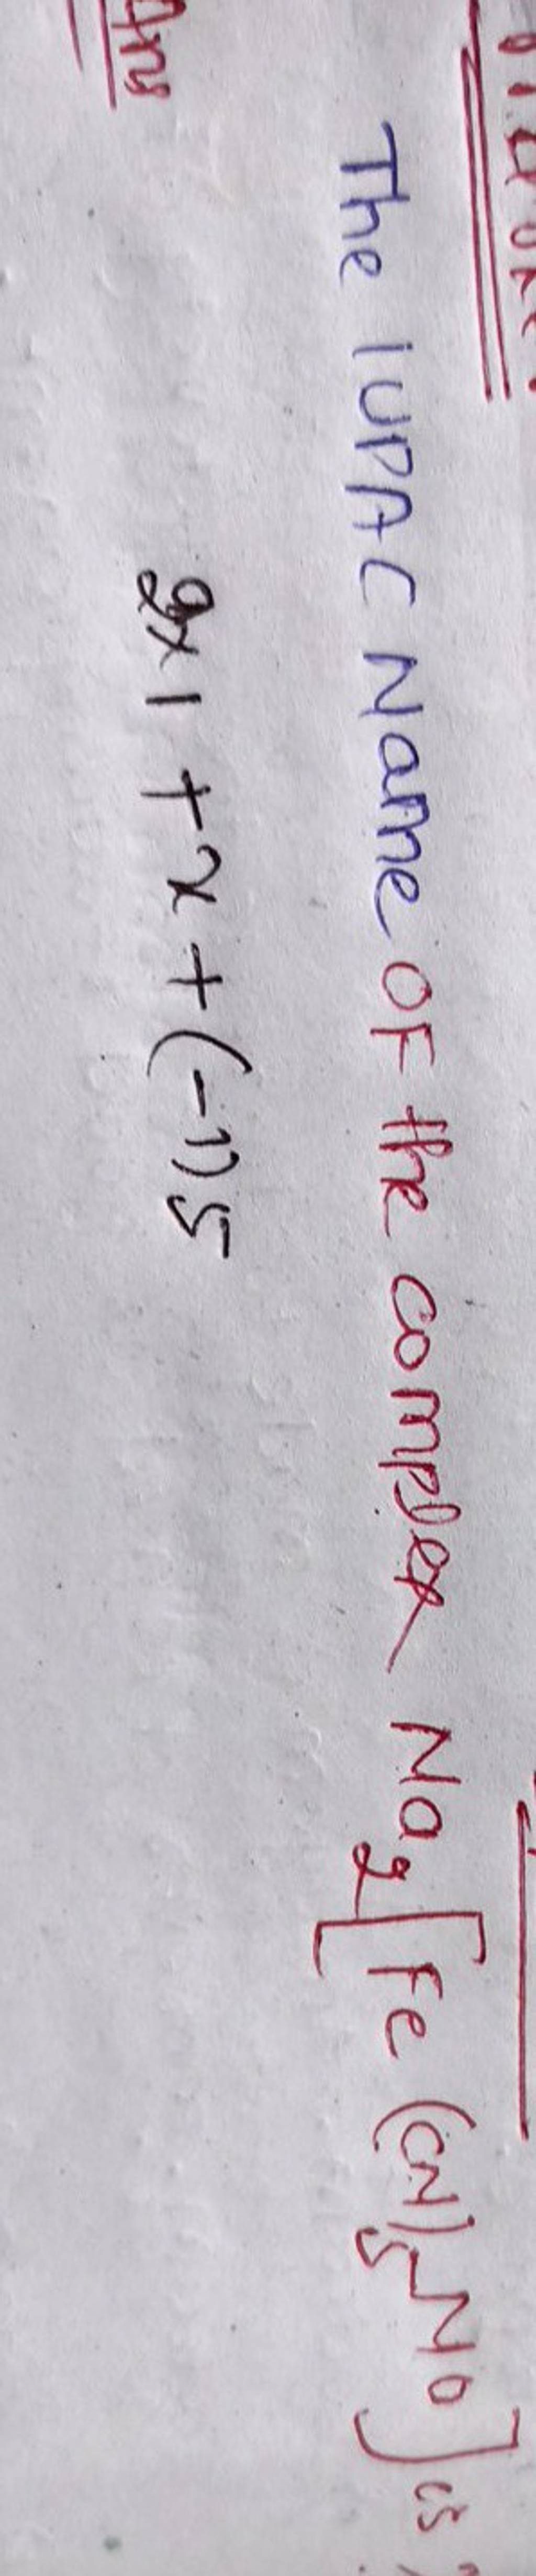 The IUPAC Name OF the complex Na2[Fe(CN)5NO] is
Ans
2x1+x+(-1)5